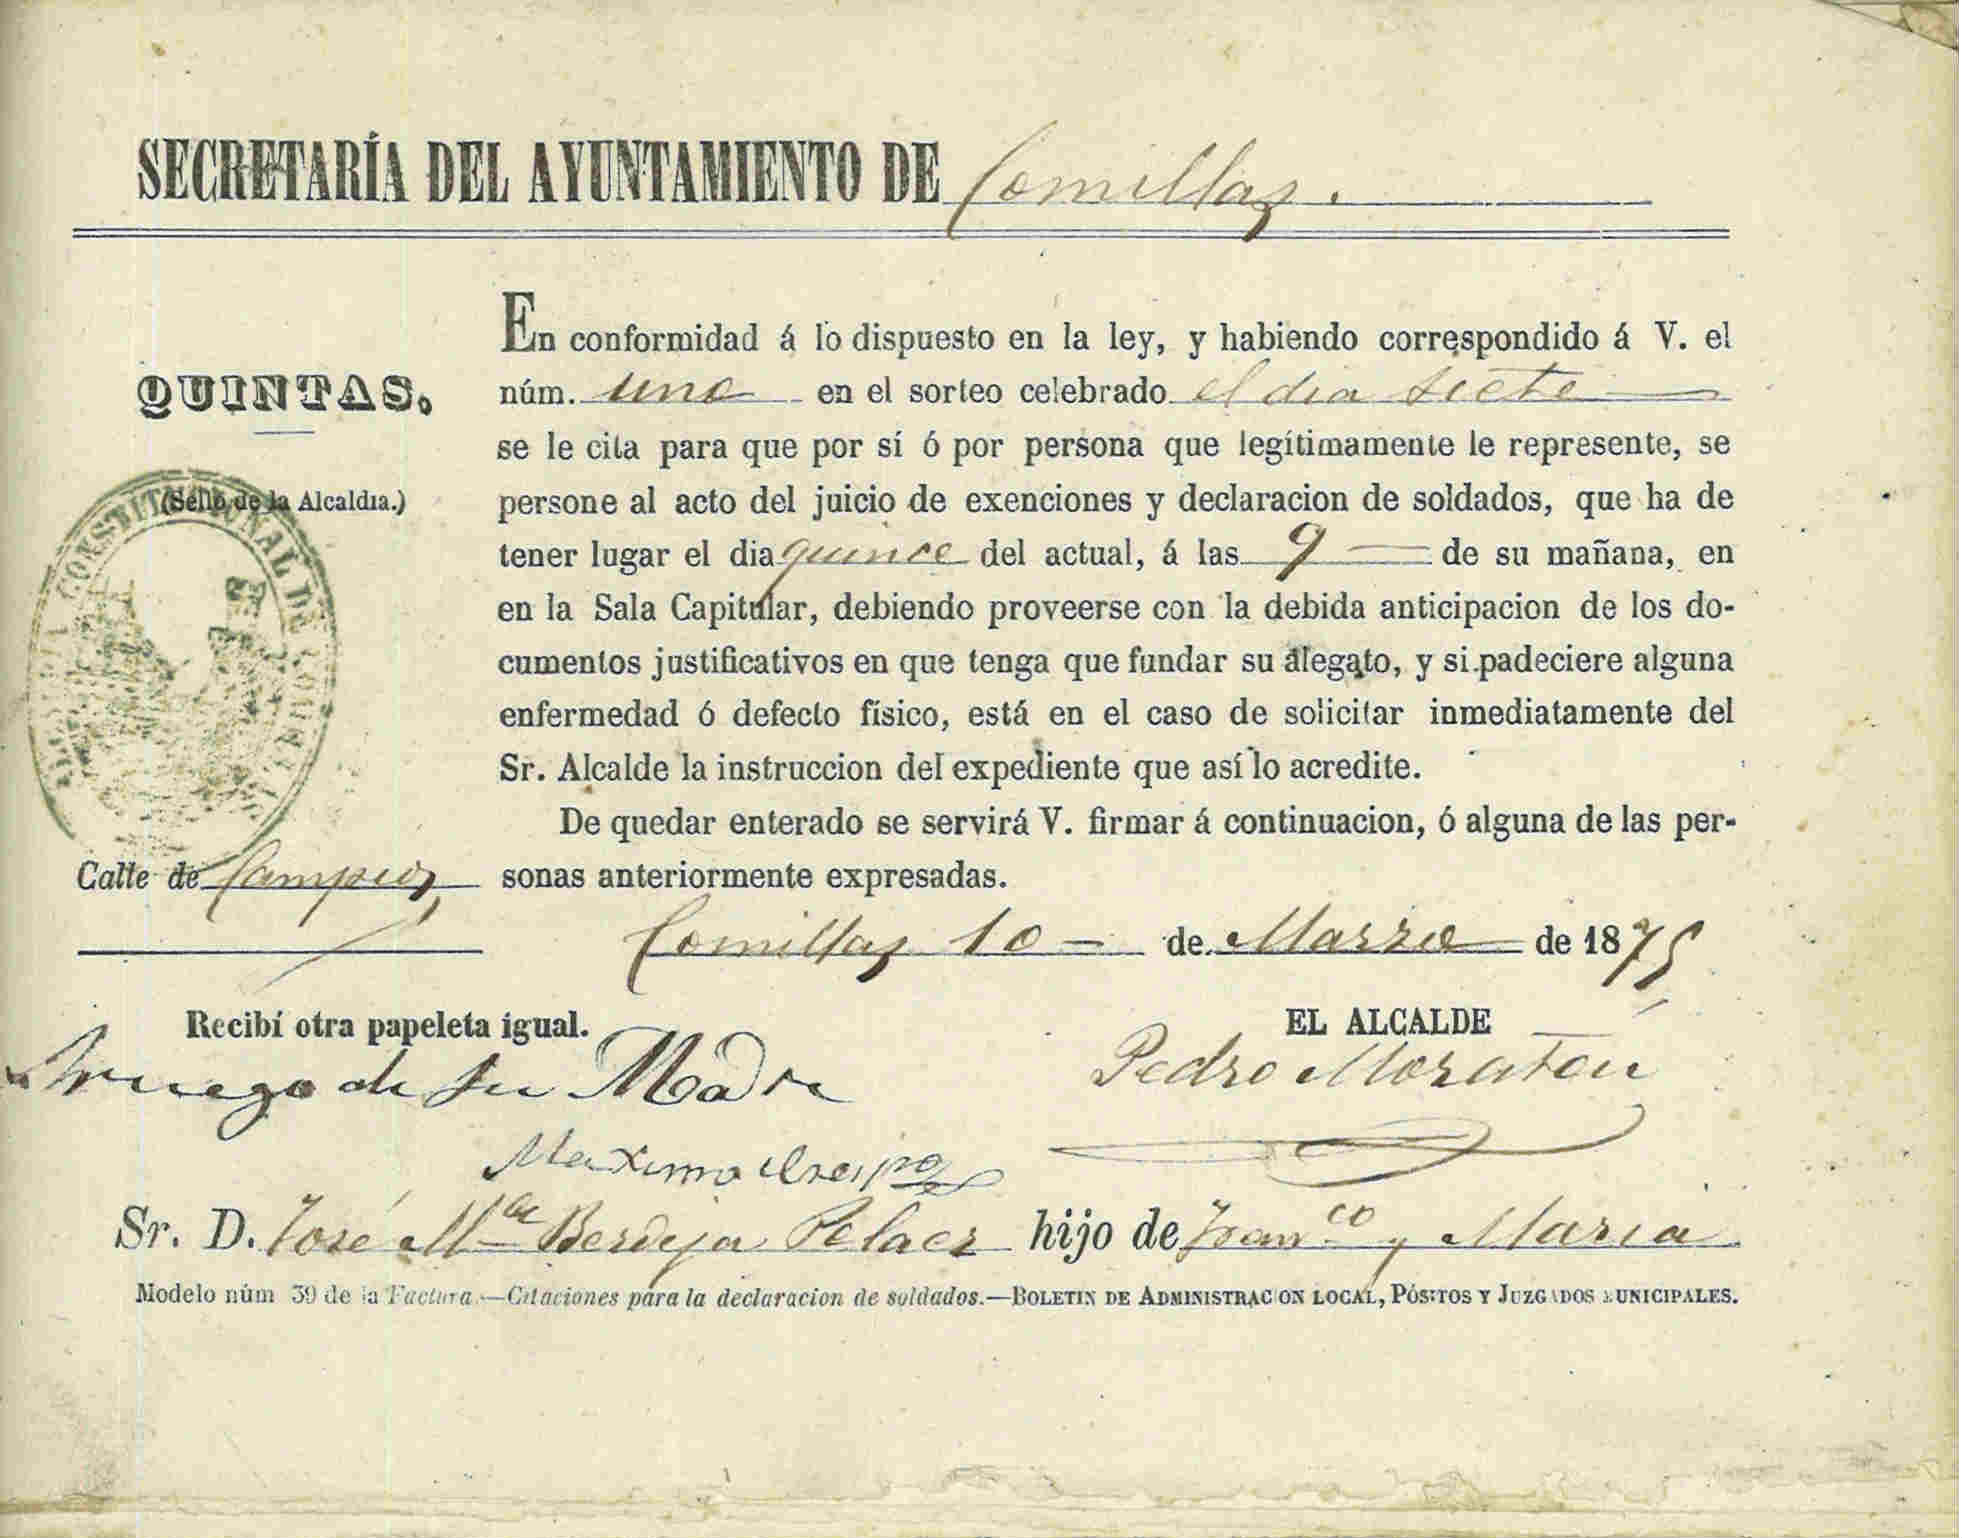 SECRETARÍA DEL AYUNTAMIENTO DE Comillas.
QUINTAS.
(Sello de la Alcaldia.)
CONSTITUCIONAL DE
En conformidad á lo dispuesto en la ley, y habiendo correspondido á V. el
núm. uno en el sorteo celebrado el dia siete
se le cita para que por sí ó por persona que legítimamente le represente, se
persone al acto del juicio de exenciones y declaracion de soldados, que ha de
tener lugar el dia quince del actual, á las 9 de su mañana, en
en la Sala Capitular, debiendo proveerse con la debida anticipacion de los do-
cumentos justificativos en que tenga que fundar su alegato, y si padeciere alguna
enfermedad ó defecto físico, está en el caso de solicitar inmediatamente del
Sr. Alcalde la instruccion del expediente que así lo acredite.
De quedar enterado se servirá V. firmar á continuacion, ó alguna de las per-
sonas anteriormente expresadas.
Calle de Campios
Comillas 10 de Marzo de 1875
Recibí otra papeleta igual.
Arruego de su Madre
Maximo Crespo
EL ALCALDE
Pedro Moratou
Sr. D. José Ma Berdeja Pelaez hijo de Franco y Maria
Modelo núm 39 de la Factura.—Citaciones para la declaracion de soldados.—BOLETIN DE ADMINISTRACION LOCAL, PÓSITOS Y JUZGADOS MUNICIPALES.